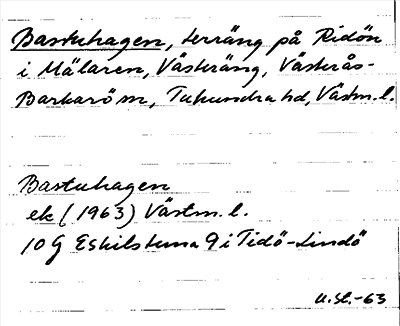 Bastuhagen, terräng på Ridön
i Mälaren, Västeräng, Västerås-
Barkarö sn, Tuhundra hd, Västm. l.
Bastuhagen
ek (1963) Västm. l.
10 G Eskilstuna 9 i Tidö-Lindö
U.Sl.-63